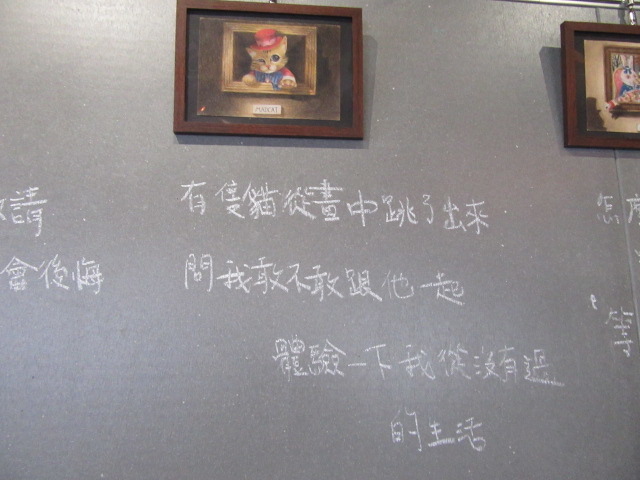 MADCAT
有隻貓從畫中跳了出來
問我敢不敢跟他一起
體驗一下我從沒有過
的生活
請
會後悔
怎麼
等